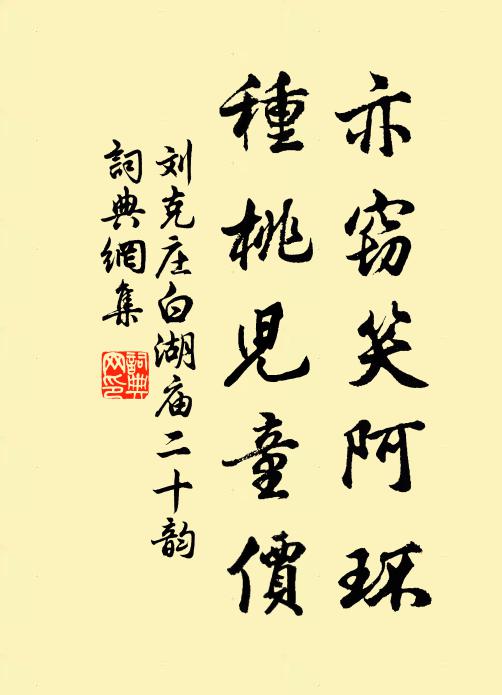 亦窃笑阿环
種桃児童價
刘克庄白湖庙二十韵
詞典網集
詞典网印